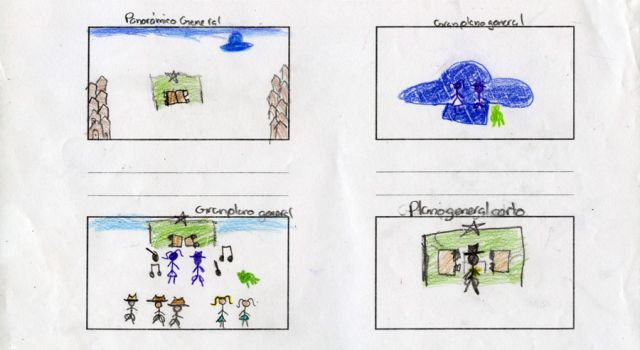 Panorámico General
Gran plano general
Gran plano general
Plano general corto